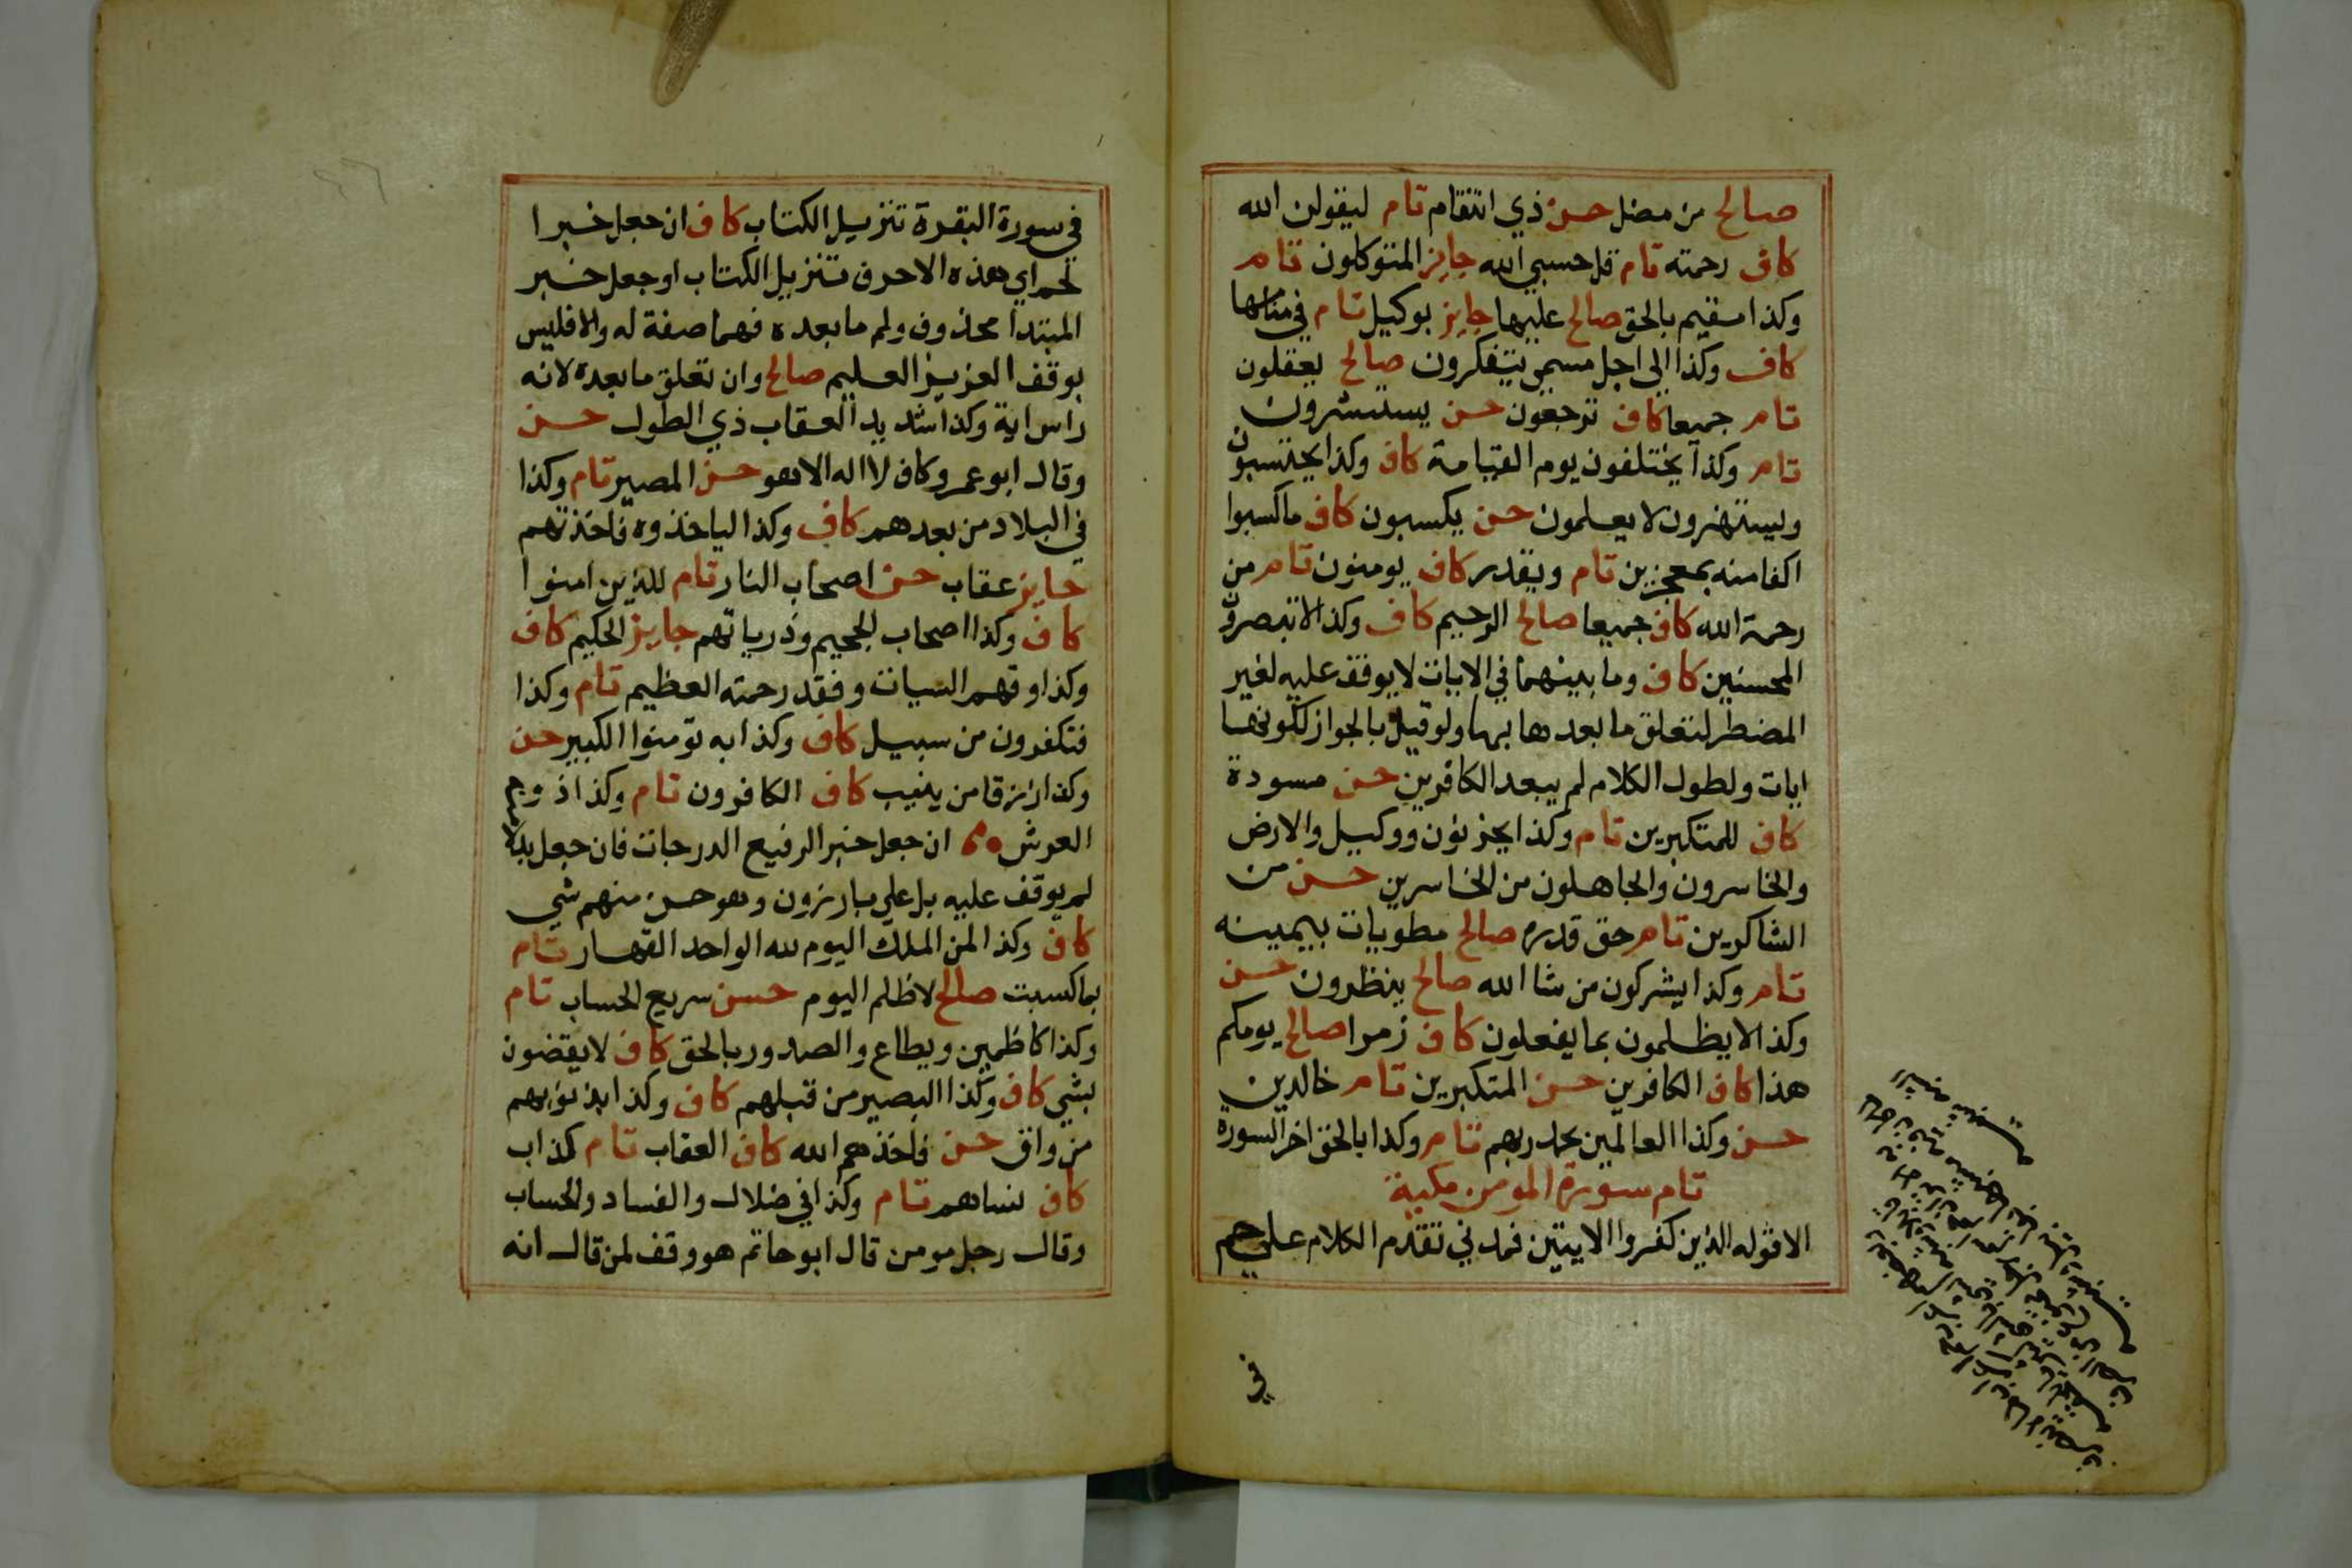 صالح من مضل حسن ذي انتقام تام ليقولن الله
كاف رحمته تام قل حسبي الله جايز المتوكلون تام
وكذا مقيم بالحق صالح عليها جايز بوكيل تام في منامها
كاف وكذا الى اجل مسمى يتفكرون صالح يعقلون
تام جميعا كاف ترجعون حسن يستبشرون
تام وكذا يختلفون يوم القيامة كاف وكذا يحتسبون
ويستهزون لا يعلمون حسن يكسبون كاف ما كسبوا
اكفا منه بمعجزين تام ويقدر كاف يومنون تام من
رحمة الله كاف جميعا صالح الرحيم كاف وكذا لا تبصرون
المحسنين كاف وما بينهما في الايات لا يوقف عليه لغير
المضطر لتعلق ما بعدها بها ولو قيل بالجواز لكونها
ايات ولطول الكلام لم يبعد الكافرين حسن مسودة
كاف للمتكبرين تام وكذا يحزنون ووكيل والارض
والخاسرون والجاهلون من الخاسرين حسن من
الشاكرين تام حق قدره صالح مطويات بيمينه
تام وكذا يشركون من شا الله صالح ينظرون حسن
وكذا لا يظلمون بما يفعلون كاف زمرا صالح يومكم
هذا كاف الكافرين حسن المتكبرين تام خالدين
حسن وكذا العالمين بحمد ربهم تام وكذا بالحق اخر السورة
تام سورة المومن مكية
الا قوله الذين كفروا الايتين فمدني تقدم الكلام على حم
في
في سورة البقرة تنزيل الكتاب كاف ان جعل خبرا
لحم اي هذه الاحرف تنزيل الكتاب او جعل خبر
المبتدا محذوف ولم ما بعده فهما صفة له والا فليس
بوقف العزيز العليم صالح وان تعلق ما بعده لانه
راس اية وكذا شديد العقاب ذي الطول حسن
وقال ابو عمرو كاف لا اله الا هو حسن المصير تام وكذا
في البلاد من بعدهم كاف وكذا لياخذوه فاخذتهم
جايز عقاب حسن اصحاب النار تام للذين امنوا
كاف وكذا اصحاب الجحيم وذرياتهم جايز الحكيم كاف
وكذا وقهم السيات وفقد رحمته العظيم تام وكذا
فتكفرون من سبيل كاف وكذا به تومنوا الكبير حسن
وكذا رزقا من ينيب كاف الكافرون تام وكذا ذو
العرش ان جعل خبرا لرفيع الدرجات فان جعل بدلا
لم يوقف عليه بل على بارزون وهو حسن منهم شي
كاف وكذا لمن الملك اليوم لله الواحد القهار تام
بما كسبت صالح لا ظلم اليوم حسن سريع الحساب تام
وكذا كاظمين ويطاع والصدور بالحق كاف لا يقضون
بشي كاف وكذا البصير من قبلهم كاف وكذا بذنوبهم
من واق حسن فاخذهم الله كاف العقاب تام كذاب
كاف نساهم تام وكذا في ضلال والفساد والحساب
وقال رجل مومن قال ابو حاتم هو وقف لمن قال انه